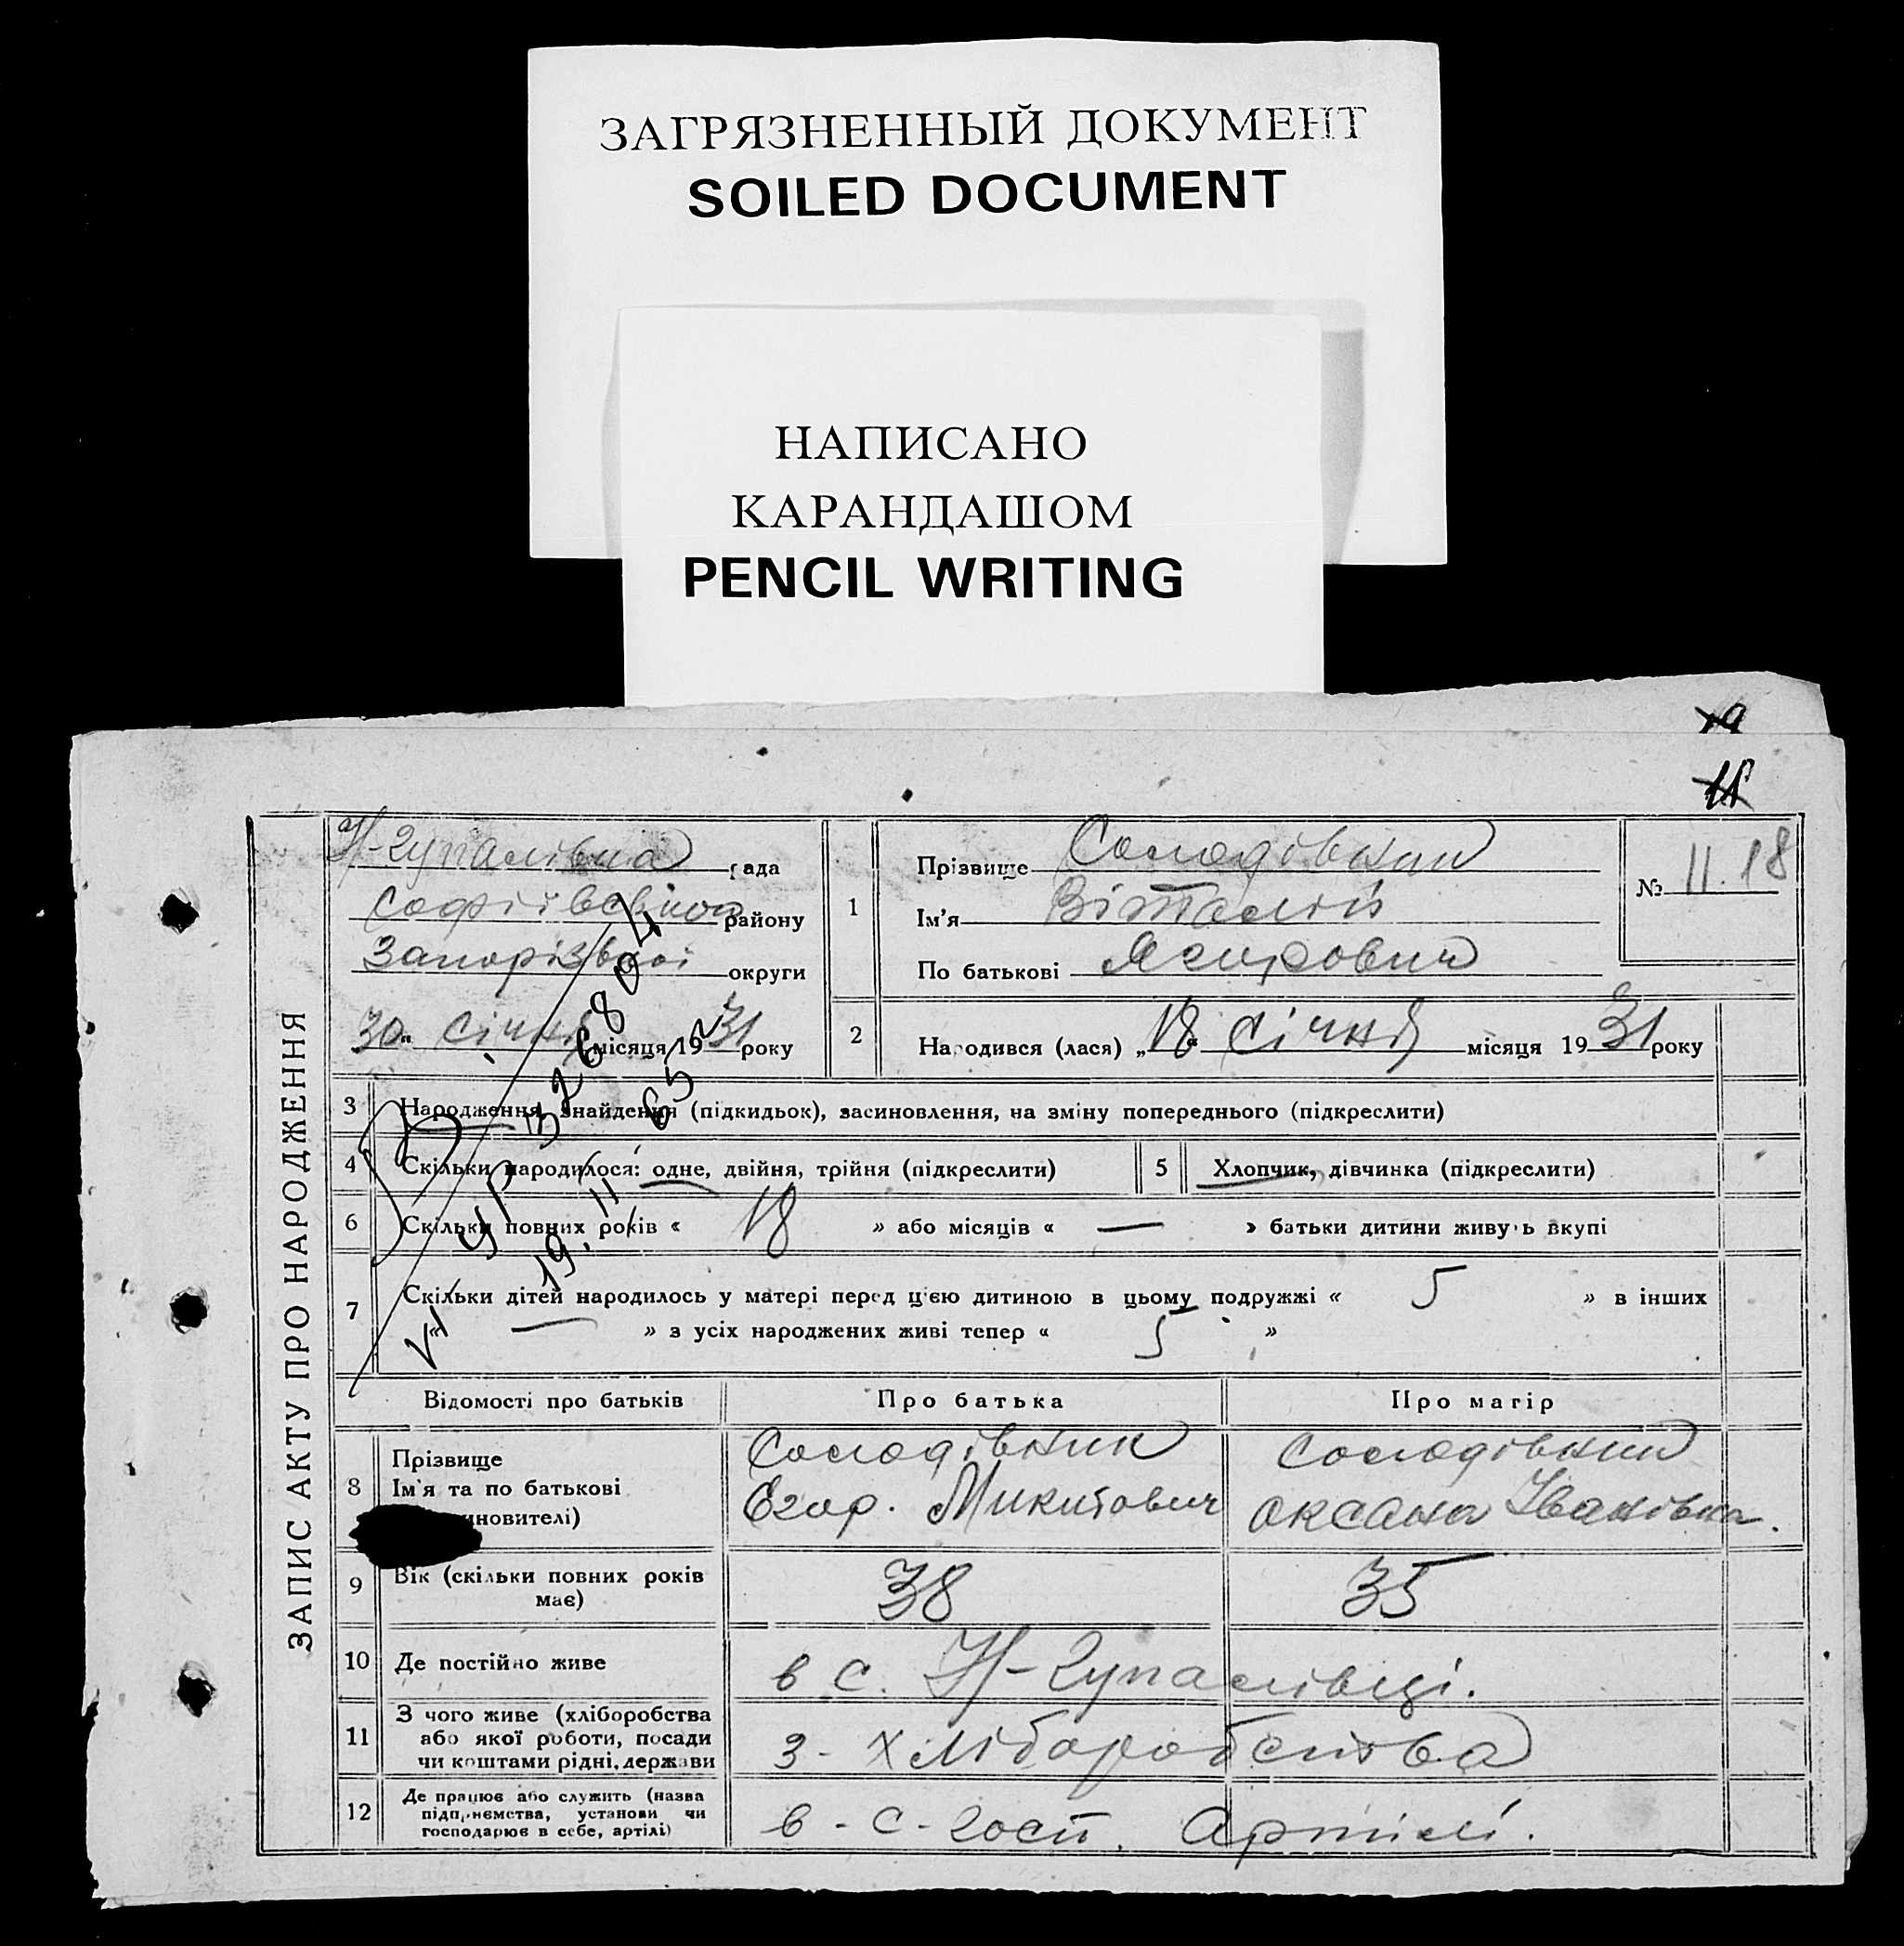 ЗАГРЯЗНЕННЫЙ ДОКУМЕНТ
SOILED DOCUMENT
НАПИСАНО
КАРАНДАШОМ
PENCIL WRITING
ЗАПИС АКТУ ПРО НАРОДЖЕННЯ
Н-Гупалівка рада
Софіївського району
Запорізької округи
30 " січня місяця 1931 року
1
Прізвище Солодівник
Ім'я Віталій
По батькові Ягорович
№ 11.18
2
Народився (лася) „ 18 “ січня місяця 1931 року
3 Народження, знайдення (підкидьок), засиновлення, на зміну попереднього (підкреслити)
4 Скільки народилося: одне, двійня, трійня (підкреслити)
5 Хлопчик, дівчинка (підкреслити)
6 Скільки повних років « 18 » або місяців « — » батьки дитини живуть вкупі
7 Скільки дітей народилось у матері перед цією дитиною в цьому подружжі « 5 » в інших
« — » з усіх народжених живі тепер « 5 »
Відомості про батьків
Про батька
Про матір
8
Прізвище
Ім'я та по батькові
иновителі)
Солодівник
Егор. Микитович
Солодівник
Оксана Іванівна.
9 Вік (скільки повних років
має)
38
35
10 Де постійно живе
в с. Н-Гупалівці.
11
З чого живе (хліборобства
або якої роботи, посади
чи коштами рідні, держави
з - хліборобства
12
Де працює або служить (назва
підприємства, установи чи
господарює в себе, артілі)
в - с - госп. Артілі.